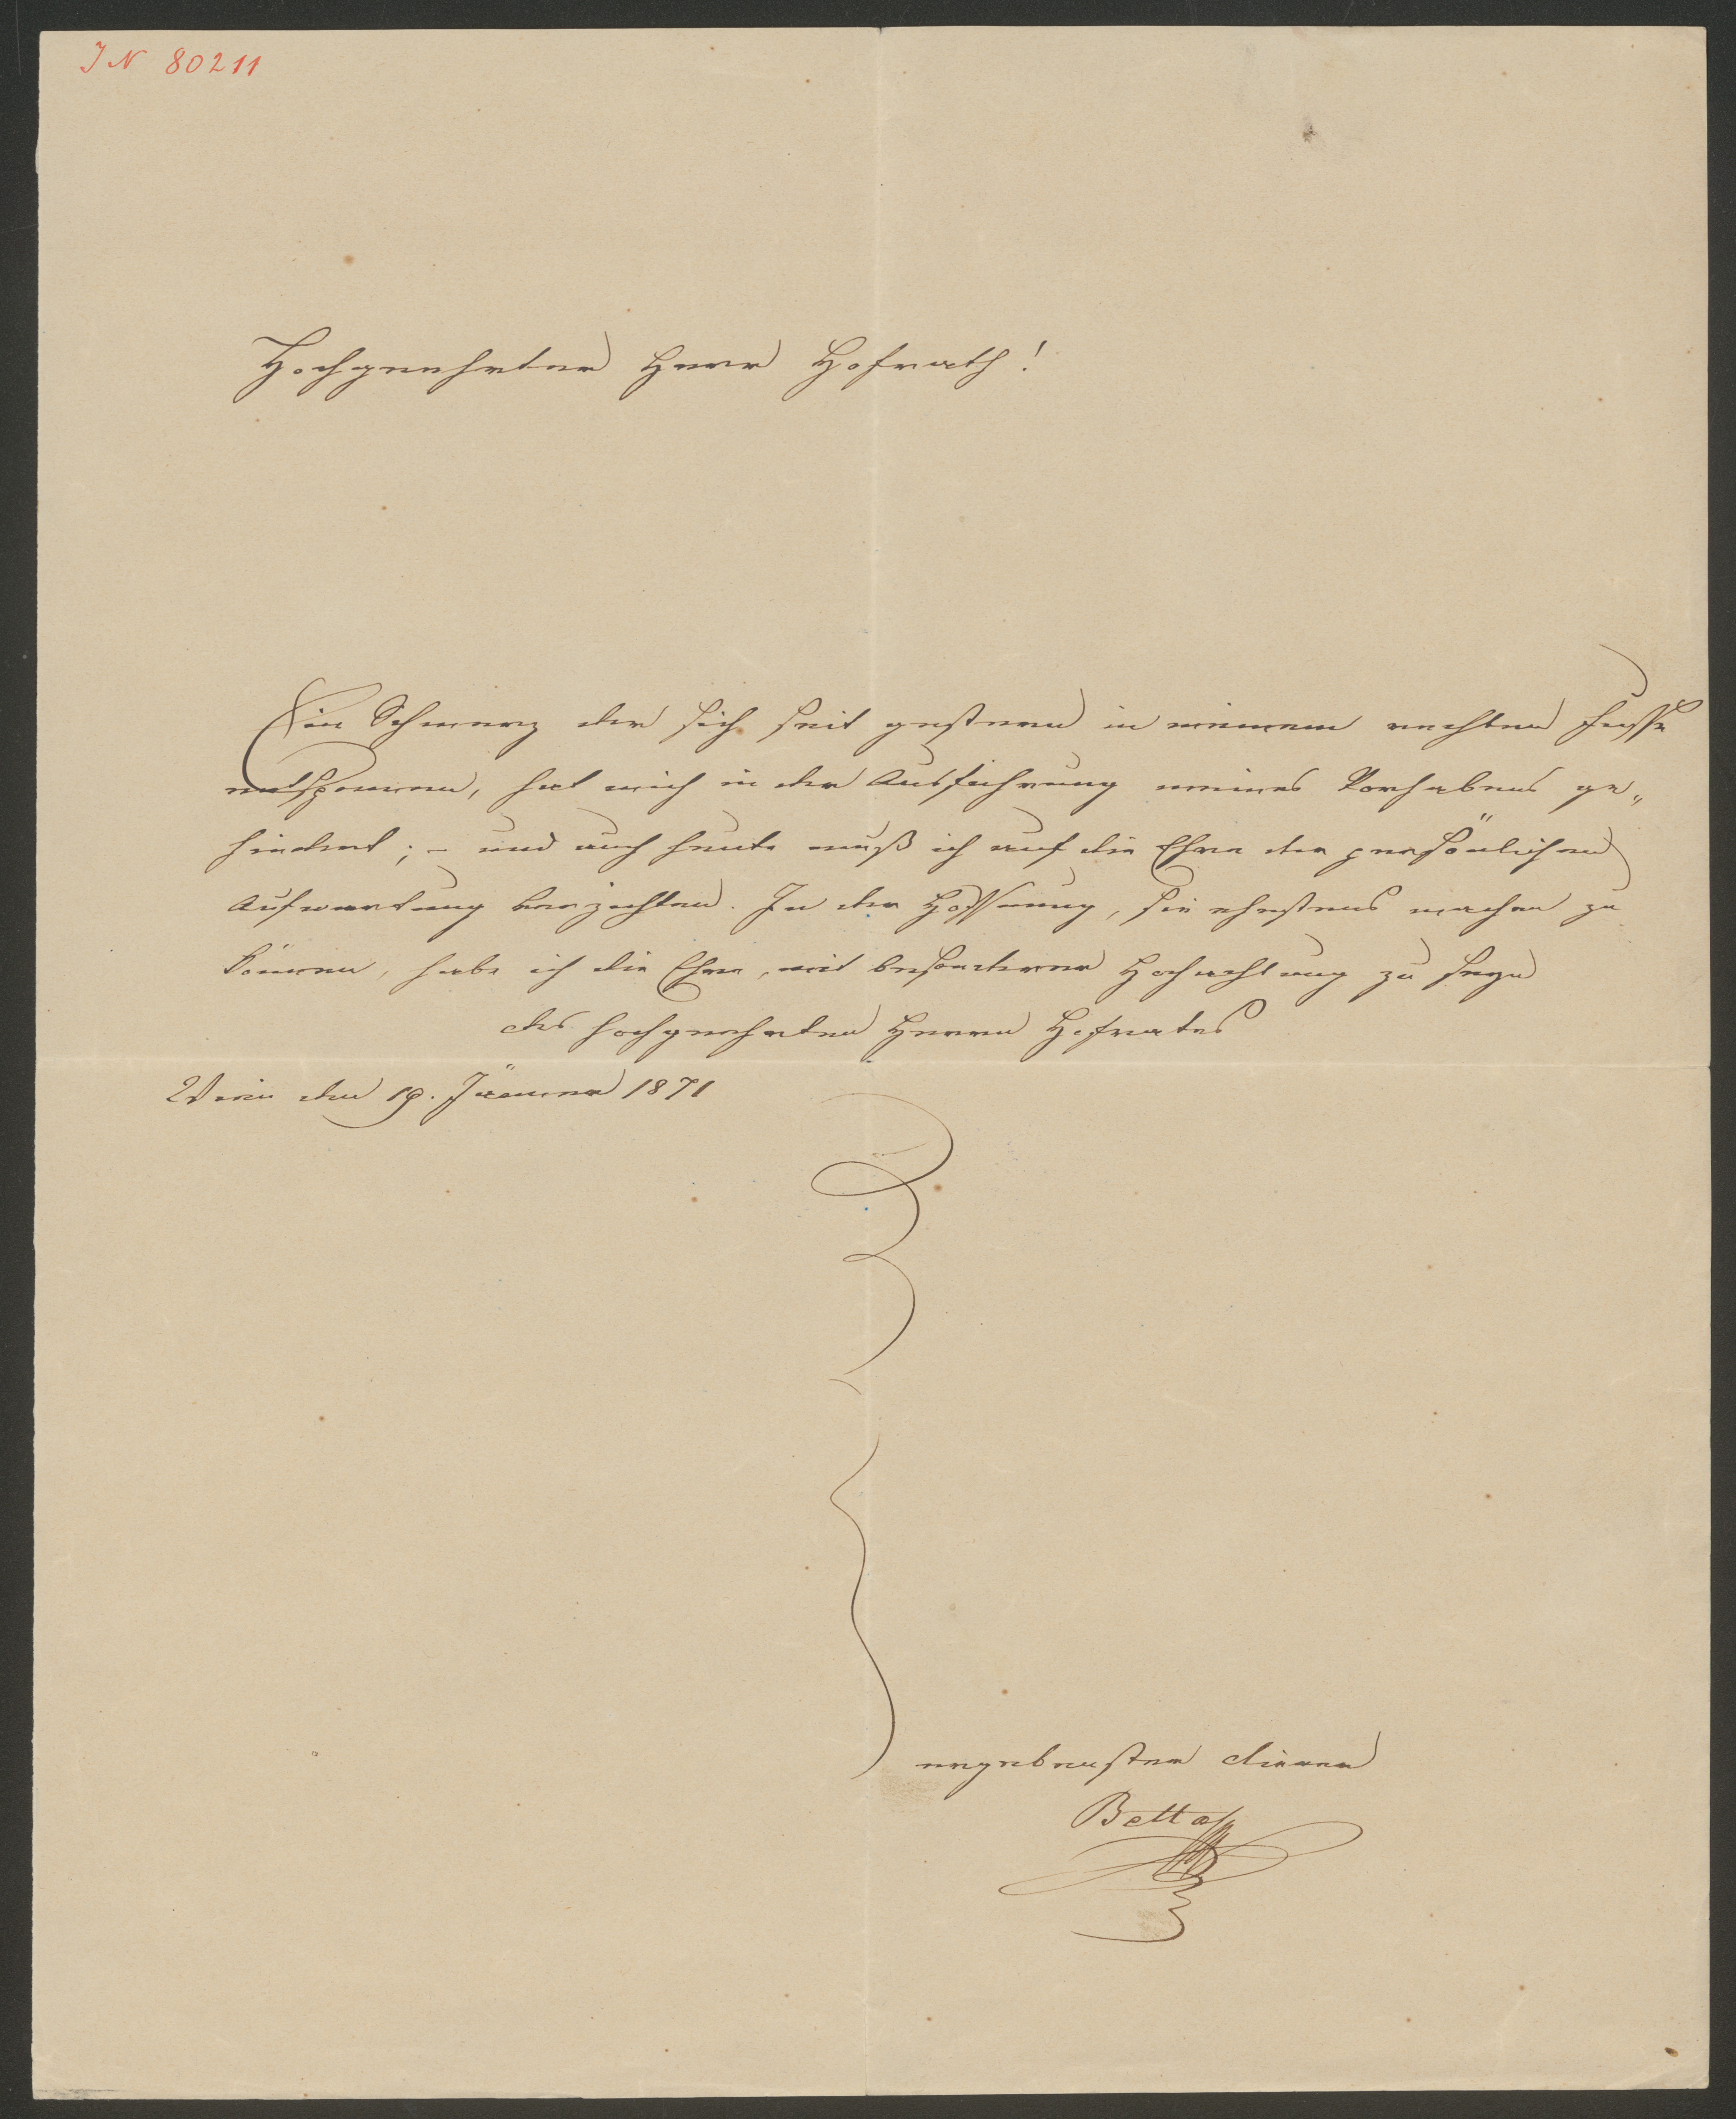 IN 80211
Hochgeehrter Herr Hofrath!
Ein Schmerz der sich seit gestern in meinem rechten Fusse
entsponnen, hat mich in der Ausführung meines Vorhabens ge„
hindert; – und auch heute muß ich auf die Ehre der persönlichen
Aufwartung verzichten. In der Hoffnung, sie ehestens machen zu
können, habe ich die Ehre, mit besonderer Hochachtung zu seyn
des hochgeehrten Herrn Hofrates
Wien den 19. Jänner 1871
ergebenster Diener